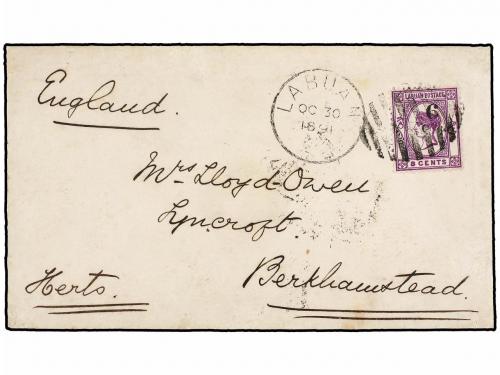 England.
LABUAN
OC 30
1891
LABUAN POSTAGE
8 CENTS
Mrs Lloyd-Owen
Lyncroft.
Berkhamstead.
Herts.